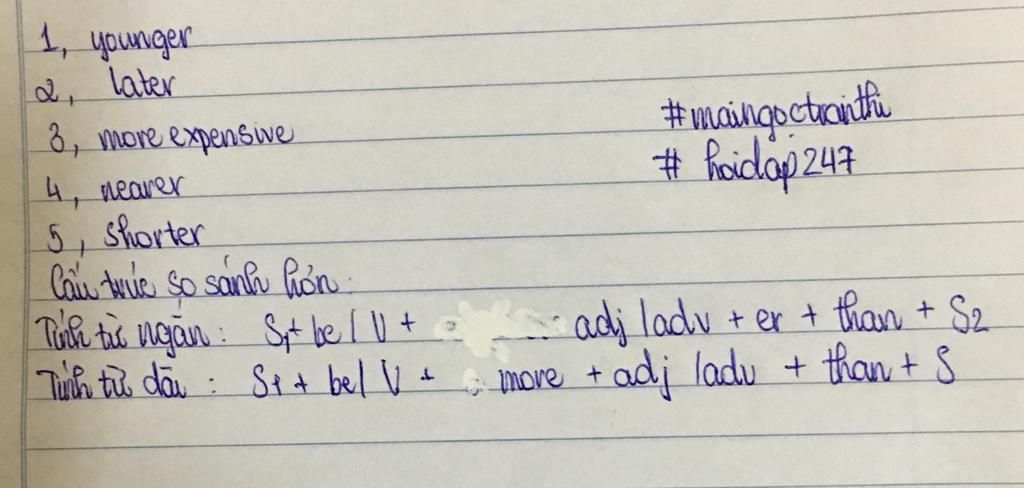 1, younger
2, later
3, more expensive
4, nearer
5, shorter
#maingoctranthi
# hoidap247
Cấu trúc so sánh hơn:
Tính từ ngắn: S1+ be/V + adj/adv + er + than + S2
Tính từ dài: S1 + be/V + more + adj/adv + than + S